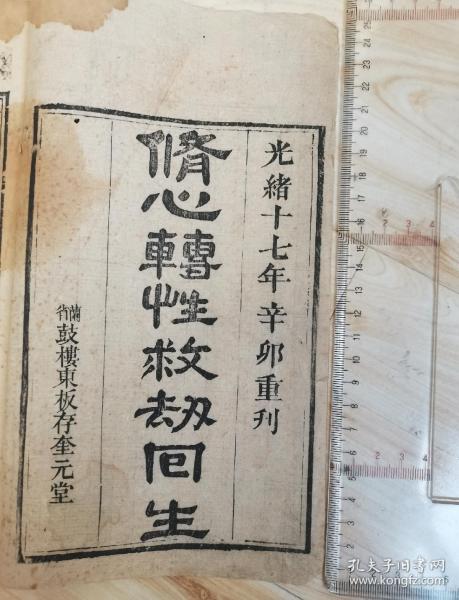 光緒十七年辛卯重刊
脩心轉性救劫回生
蘭省鼓樓東板存奎元堂
孔夫子旧书网
www.kongfz.com